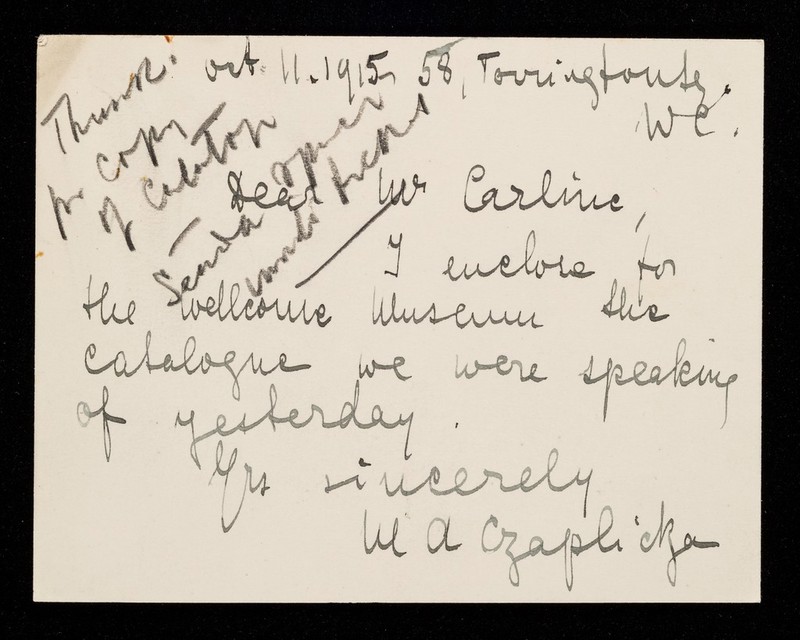 Oct. 11. 1915. 58, Torringtonsq.
W C.
Thank
for copy
of
Send
Dear Mr Carline,
I enclose for
the Wellcome Museum the
catalogue we were speaking
of yesterday.
Yrs sincerely
M A Czaplicka